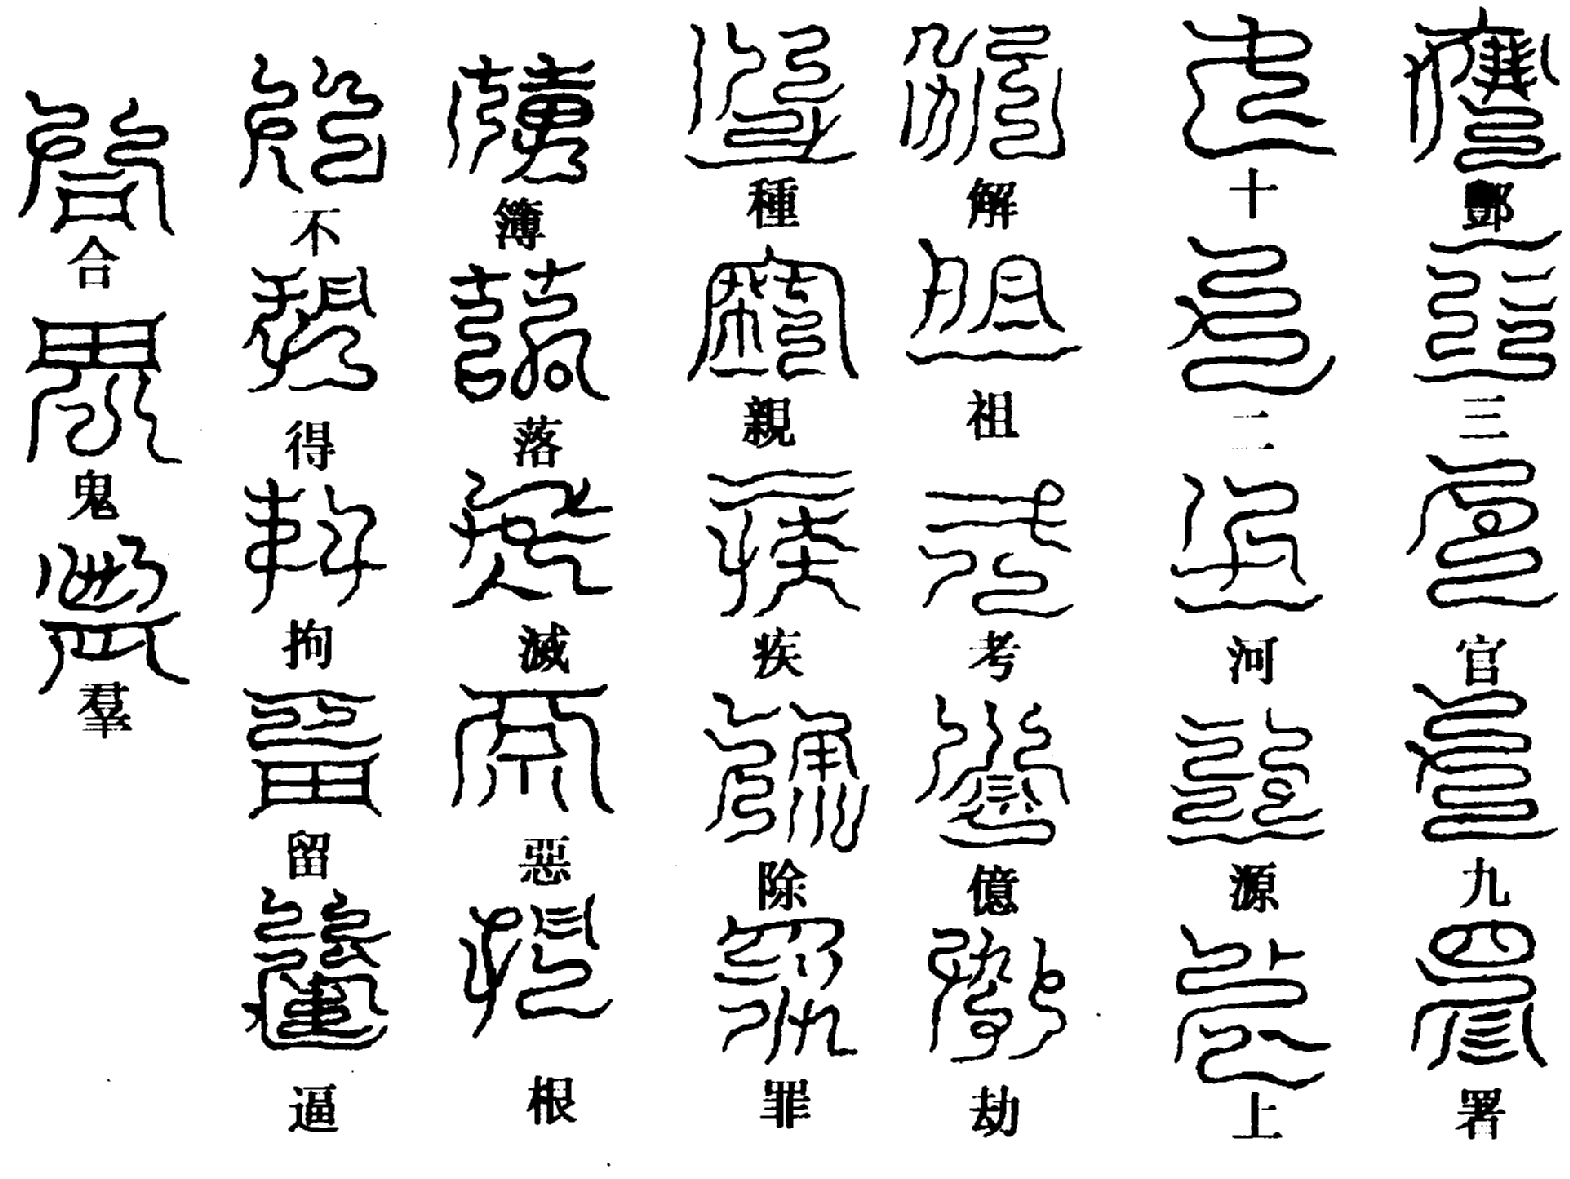 酆三官九署
十二河源上
解祖考億劫
種親疾除罪
簿落滅惡根
不得拘留逼
合鬼羣